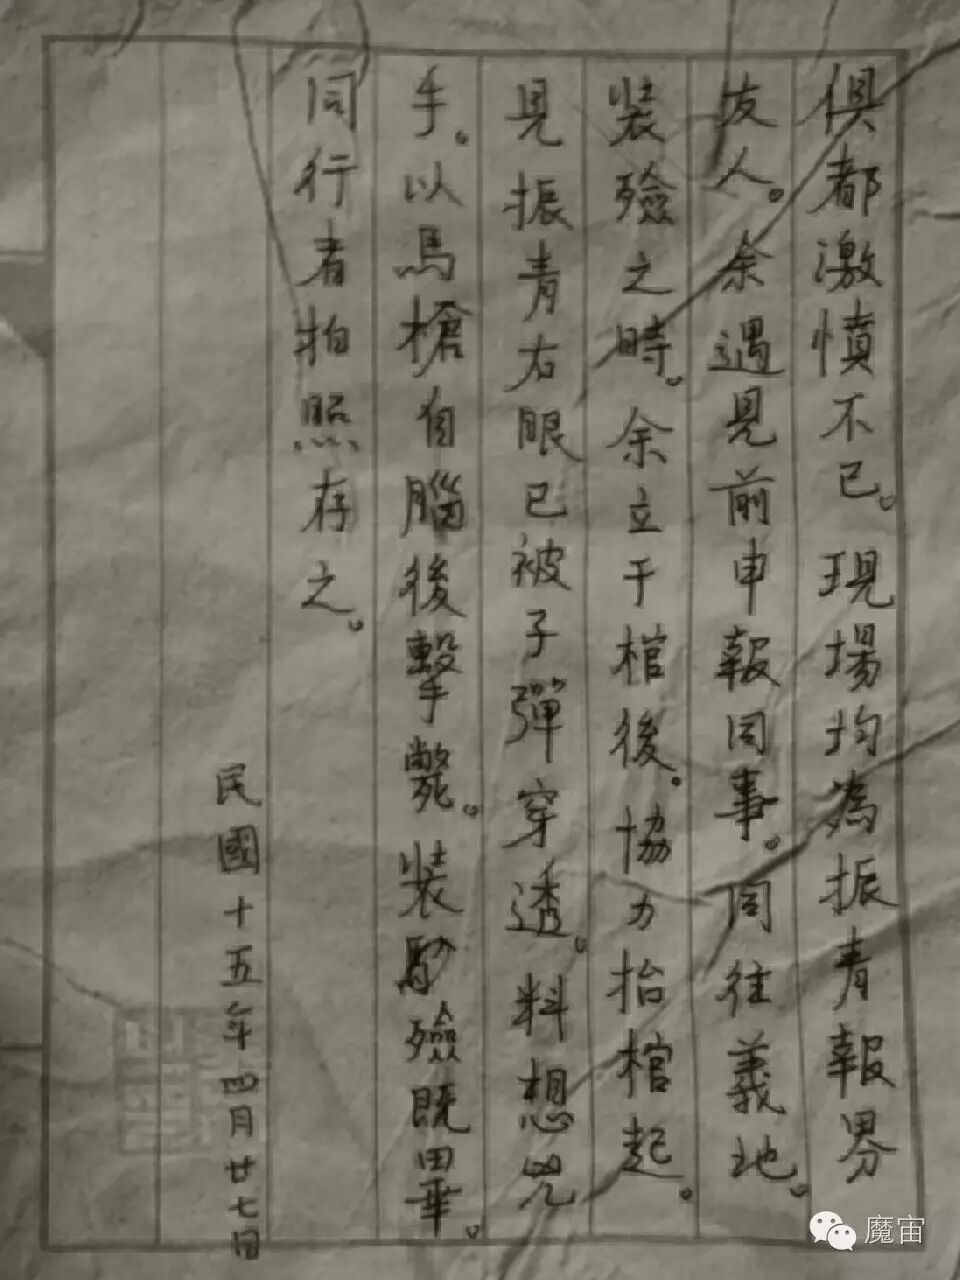 俱都激憤不已。現場均為振青報界
友人。余遇見前申報同事。同往義地。
裝殮之時。余立于棺後。協力抬棺起。
見振青右眼已被子彈穿透。料想兇
手。以馬槍自腦後擊斃。裝殮既畢。
同行者拍照存之。
民國十五年四月廿七日
魔宙